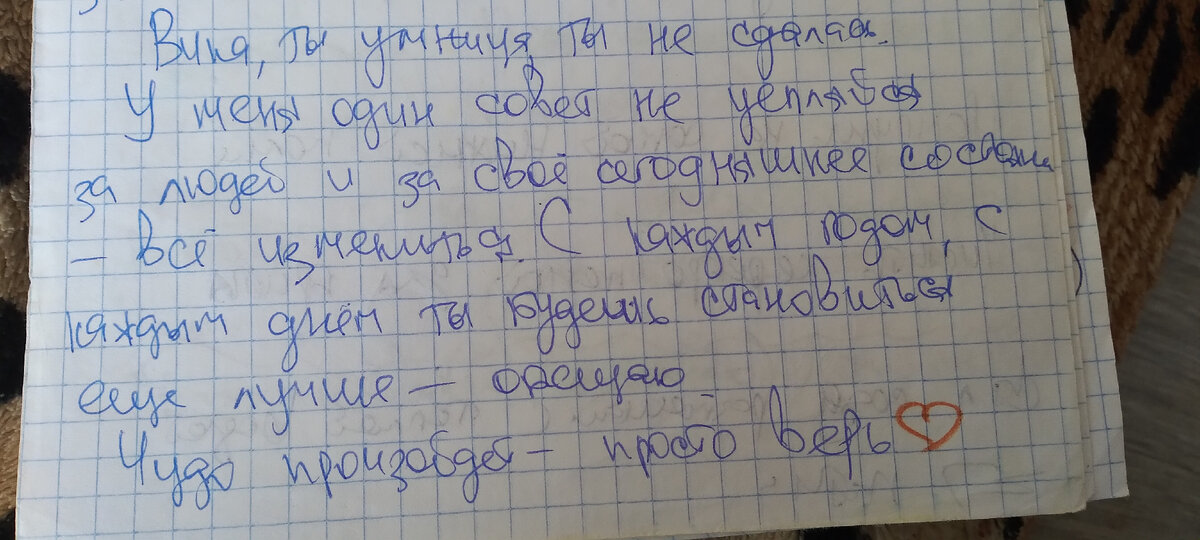 Вика, ты умница, ты не сдалась.
У меня один совет не цепляйся
за людей и за своё сегодняшнее
– всё изменится. С каждым годом, с
каждым днём ты будешь становиться
еще лучше – обещаю
Чудо произойдет – просто верь